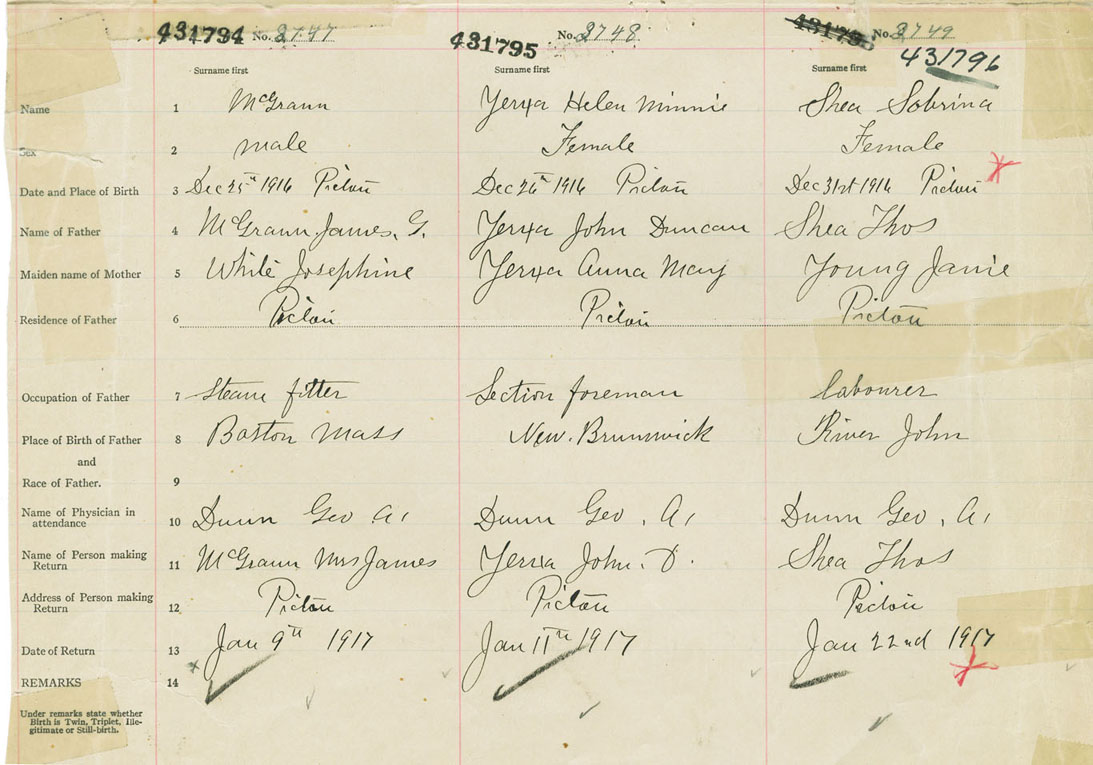 431794 No. 3747 431795 No. 3748 431796 No. 3749
431796
Surname first Surname first Surname first
Name 1 McGrann Yerxa Helen Minnie Shea Sobrina
Sex 2 male Female Female
Date and Place of Birth 3 Dec 25th 1916 Pictou Dec 26th 1916 Pictou Dec 31st 1916 Pictou
Name of Father 4 McGrann James. G. Yerxa John Duncan Shea Thos
Maiden name of Mother 5 White Josephine Yerxa Anna May Young Janie
Residence of Father 6 Pictou Pictou Pictou
Occupation of Father 7 Steam fitter Section foreman labourer
Place of Birth of Father 8 Boston Mass New. Brunswick River John
and
Race of Father. 9
Name of Physician in
attendance 10 Dunn Geo A. Dunn Geo. A. Dunn Geo. A.
Name of Person making
Return 11 McGrann Mrs James Yerxa John. D. Shea Thos
Address of Person making
Return 12 Pictou Pictou Pictou
Date of Return 13 Jan 9th 1917 Jan 11th 1917 Jan 22nd 1917
REMARKS 14
Under remarks state whether
Birth is Twin, Triplet, Ille-
gitimate or Still-birth.